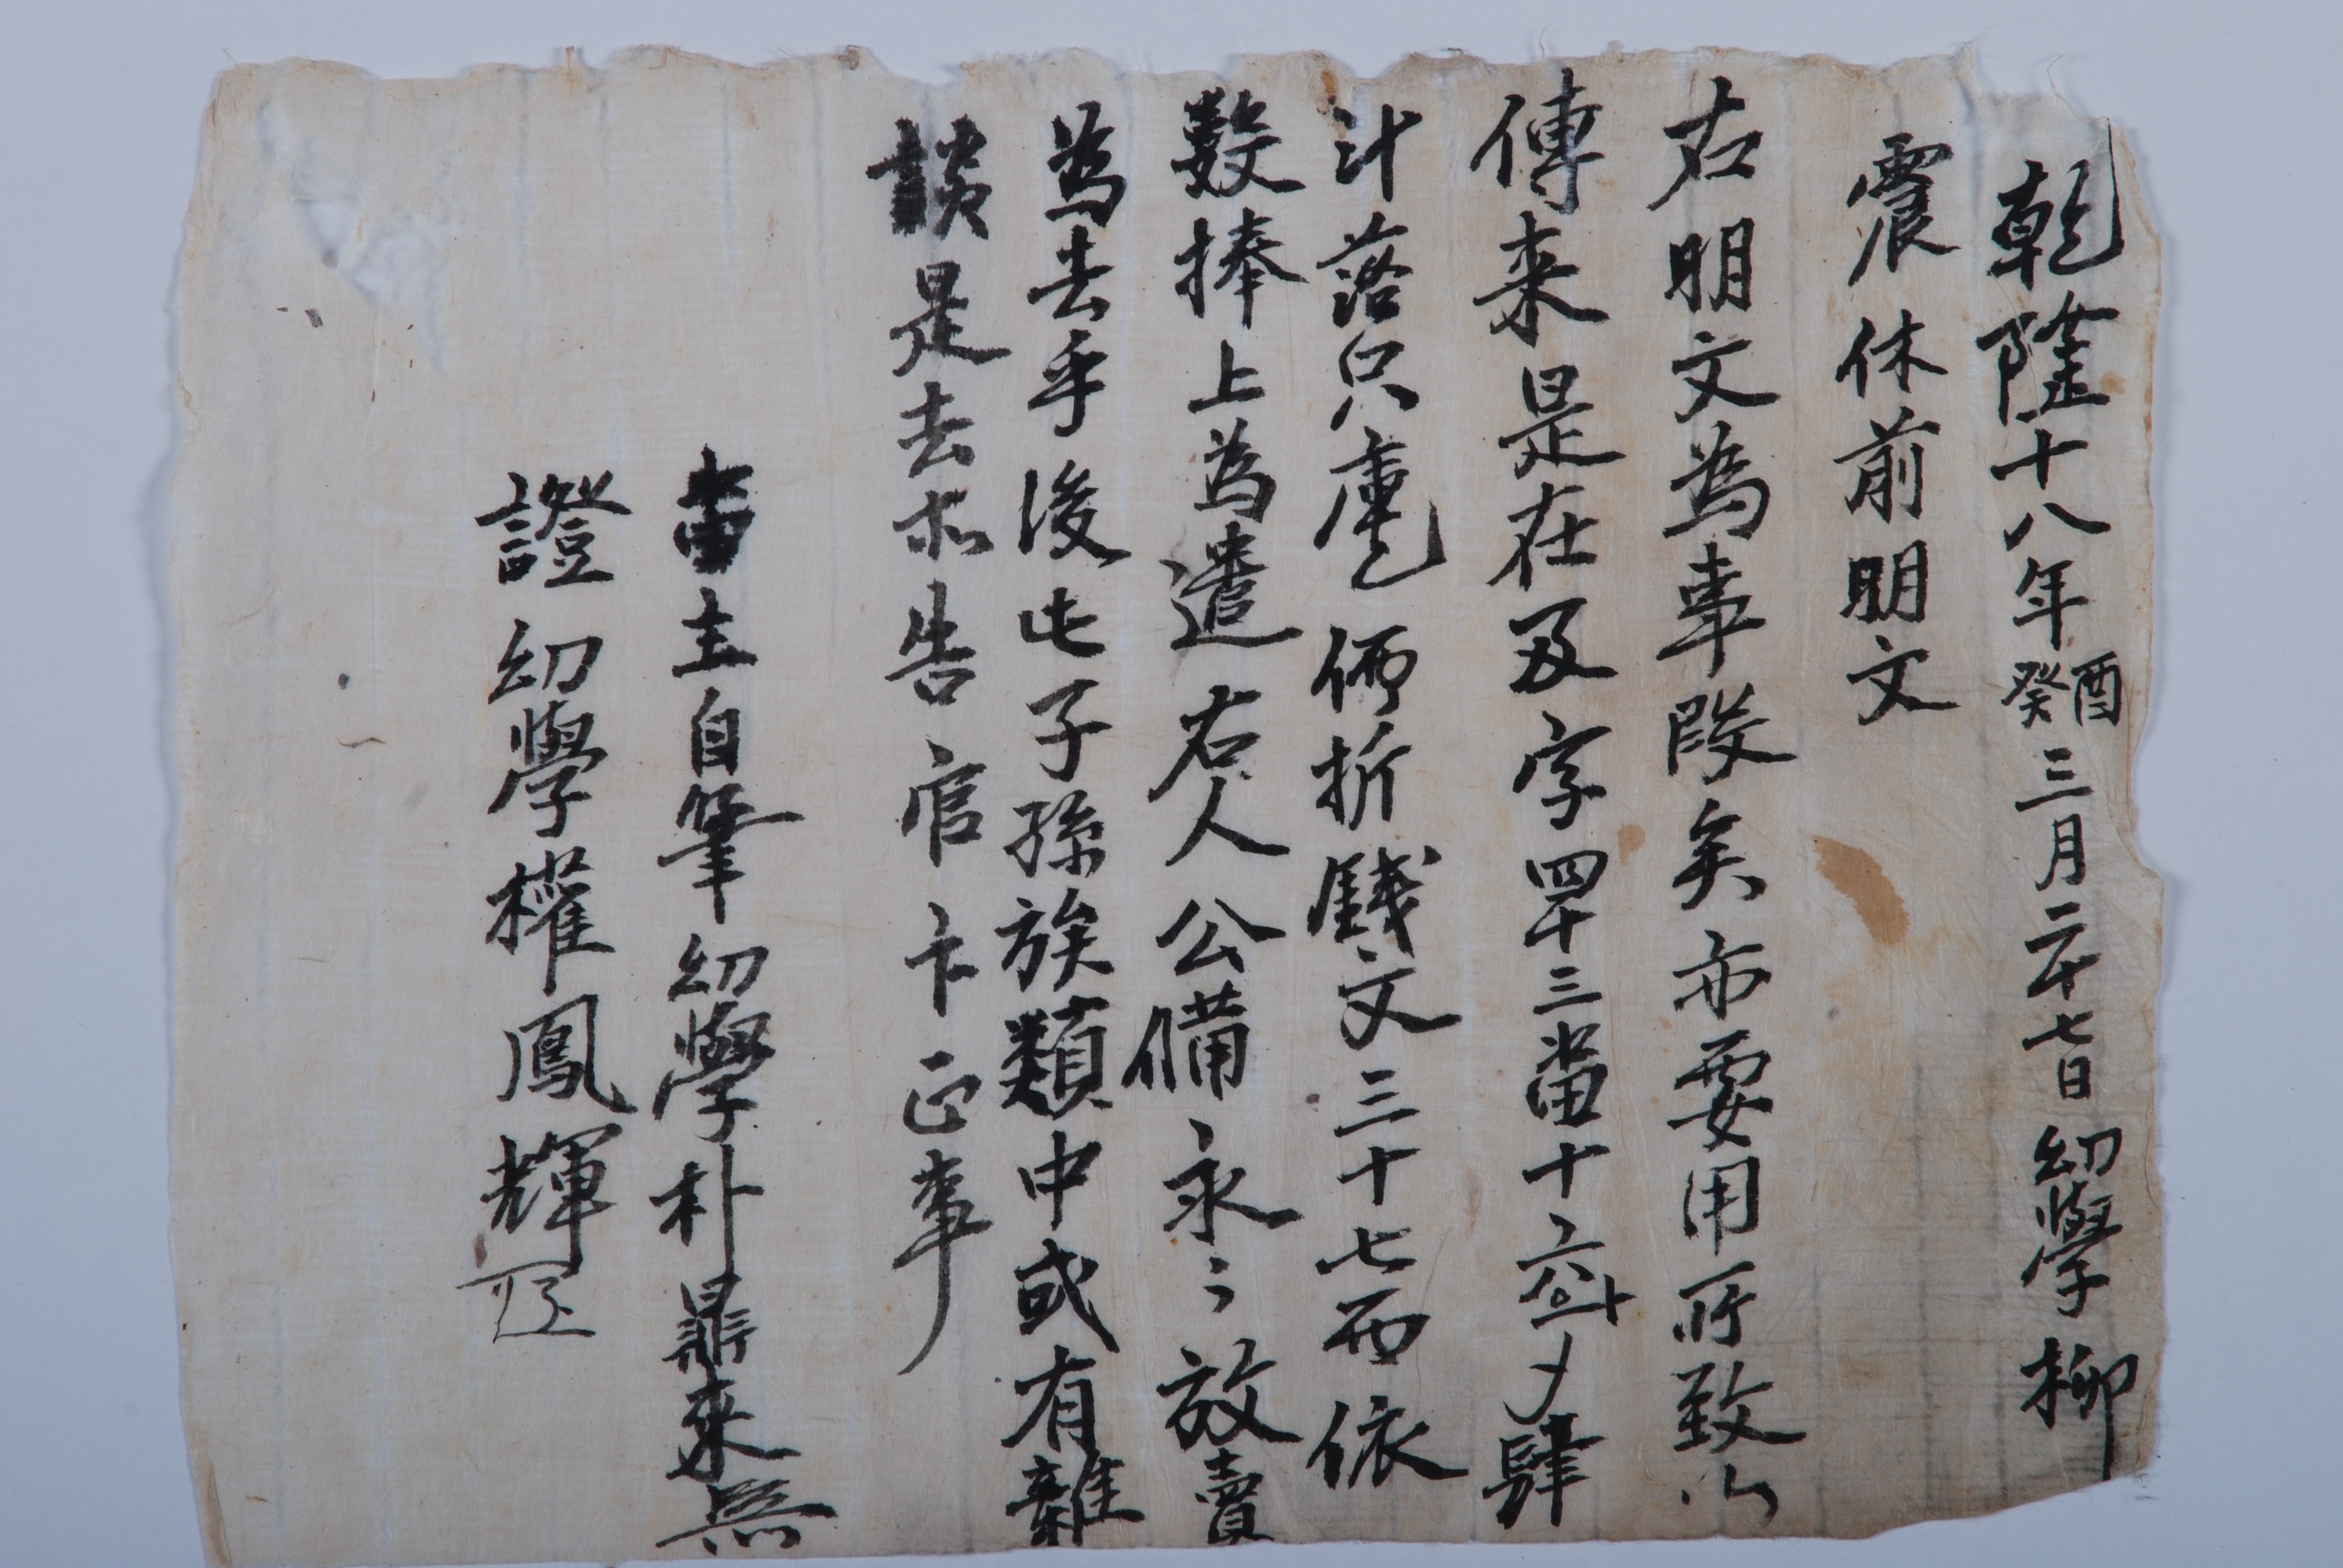 乾隆十八年癸酉三月二十七日幼學柳
震休前明文
右明文爲事段矣亦要用所致以
傳来是在及字四十三畓十六卜夕肆
斗落只庫乙價折錢文三十七兩依
數捧上爲遣右人公備永〻放賣
爲去乎後此子孫族類中或有雜
談是去等告官卞正事
畓主自筆幼學朴鼎來
證幼學權鳳輝